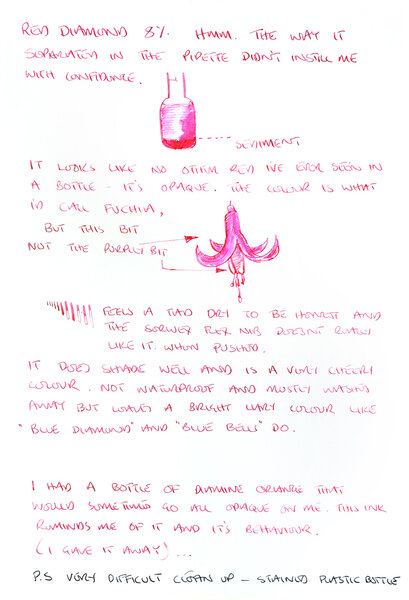 RED DIAMOND 8%. HMM. THE WAY IT
SEPARATED IN THE PIPETTE DIDN'T INSTILL ME
WITH CONFIDENCE.
SEDIMENT
IT LOOKS LIKE NO OTHER RED I'VE EVER SEEN IN
A BOTTLE - IT'S OPAQUE. THE COLOUR IS WHAT
I'D CALL FUCHIA,
BUT THIS BIT
NOT THE PURPLEY BIT
FEELS A TAD DRY TO BE HONEST AND
THE FLEX NIB DOESN'T REALLY
LIKE IT WHEN PUSHED.
IT DOES SHADE WELL AND IS A VERY CHEERY
COLOUR. NOT WATERPROOF AND MOSTLY WASHES
AWAY BUT LEAVES A BRIGHT COLOUR LIKE
"BLUE DIAMOND" AND "BLUE BELL" DO.
I HAD A BOTTLE OF DIAMINE ORANGE THAT
WOULD SOMETIMES GO ALL OPAQUE ON ME. THIS INK
REMINDS ME OF IT AND IT'S BEHAVIOUR.
(I GAVE IT AWAY)...
P.S VERY DIFFICULT CLEAN UP - STAINED PLASTIC BOTTLE